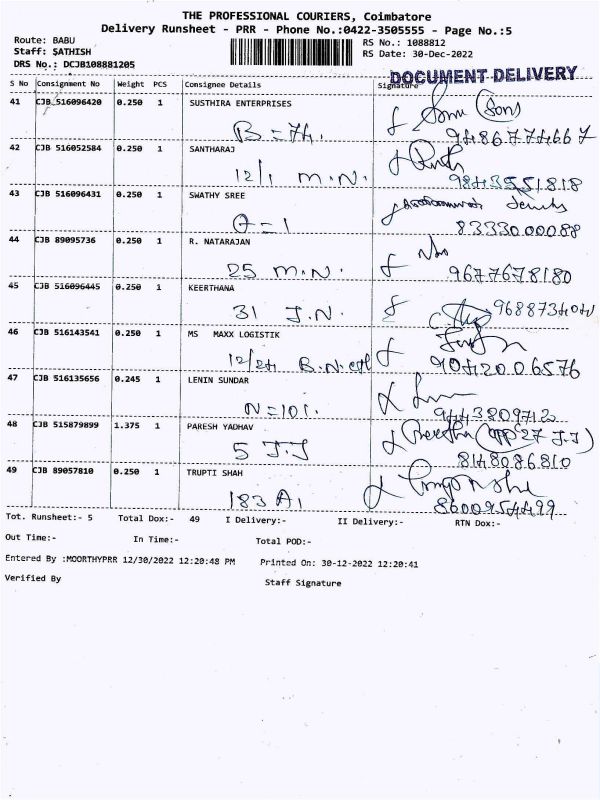 THE PROFESSIONAL COURIERS, Coimbatore
Delivery Runsheet - PRR - Phone No.:0422-3505555 - Page No.:5
Route: BABU
RS No.: 1088812
Staff: SATHISH
RS Date: 30-Dec-2022
DRS No.: DCJB108881205
DOCUMENT DELIVERY
S No Consignment No Weight PCS Consignee Details Signature
41 CJB 516096420 0.250 1 SUSTHIRA ENTERPRISES
B = 74. 9486774667
42 CJB 516052584 0.250 1 SANTHARAJ
12/1 M.N. 9843551818
43 CJB 516096431 0.250 1 SWATHY SREE
8333000088
44 CJB 89095736 0.250 1 R. NATARAJAN
25 M.N. 9677678180
45 CJB 516096445 0.250 1 KEERTHANA
31 J.N.
46 CJB 516143541 0.250 1 MS MAXX LOGISTIK
12/24 9042006576
47 CJB 516135656 0.245 1 LENIN SUNDAR
N=101. 9443809712
48 CJB 515879899 1.375 1 PARESH YADHAV
5 J.J 8148086810
49 CJB 89057810 0.250 1 TRUPTI SHAH
183 A1 8600954499
Tot. Runsheet:- 5 Total Dox:- 49 I Delivery:- II Delivery:- RTN Dox:-
Out Time:- In Time:- Total POD:-
Entered By :MOORTHYPRR 12/30/2022 12:20:48 PM Printed On: 30-12-2022 12:20:41
Verified By Staff Signature